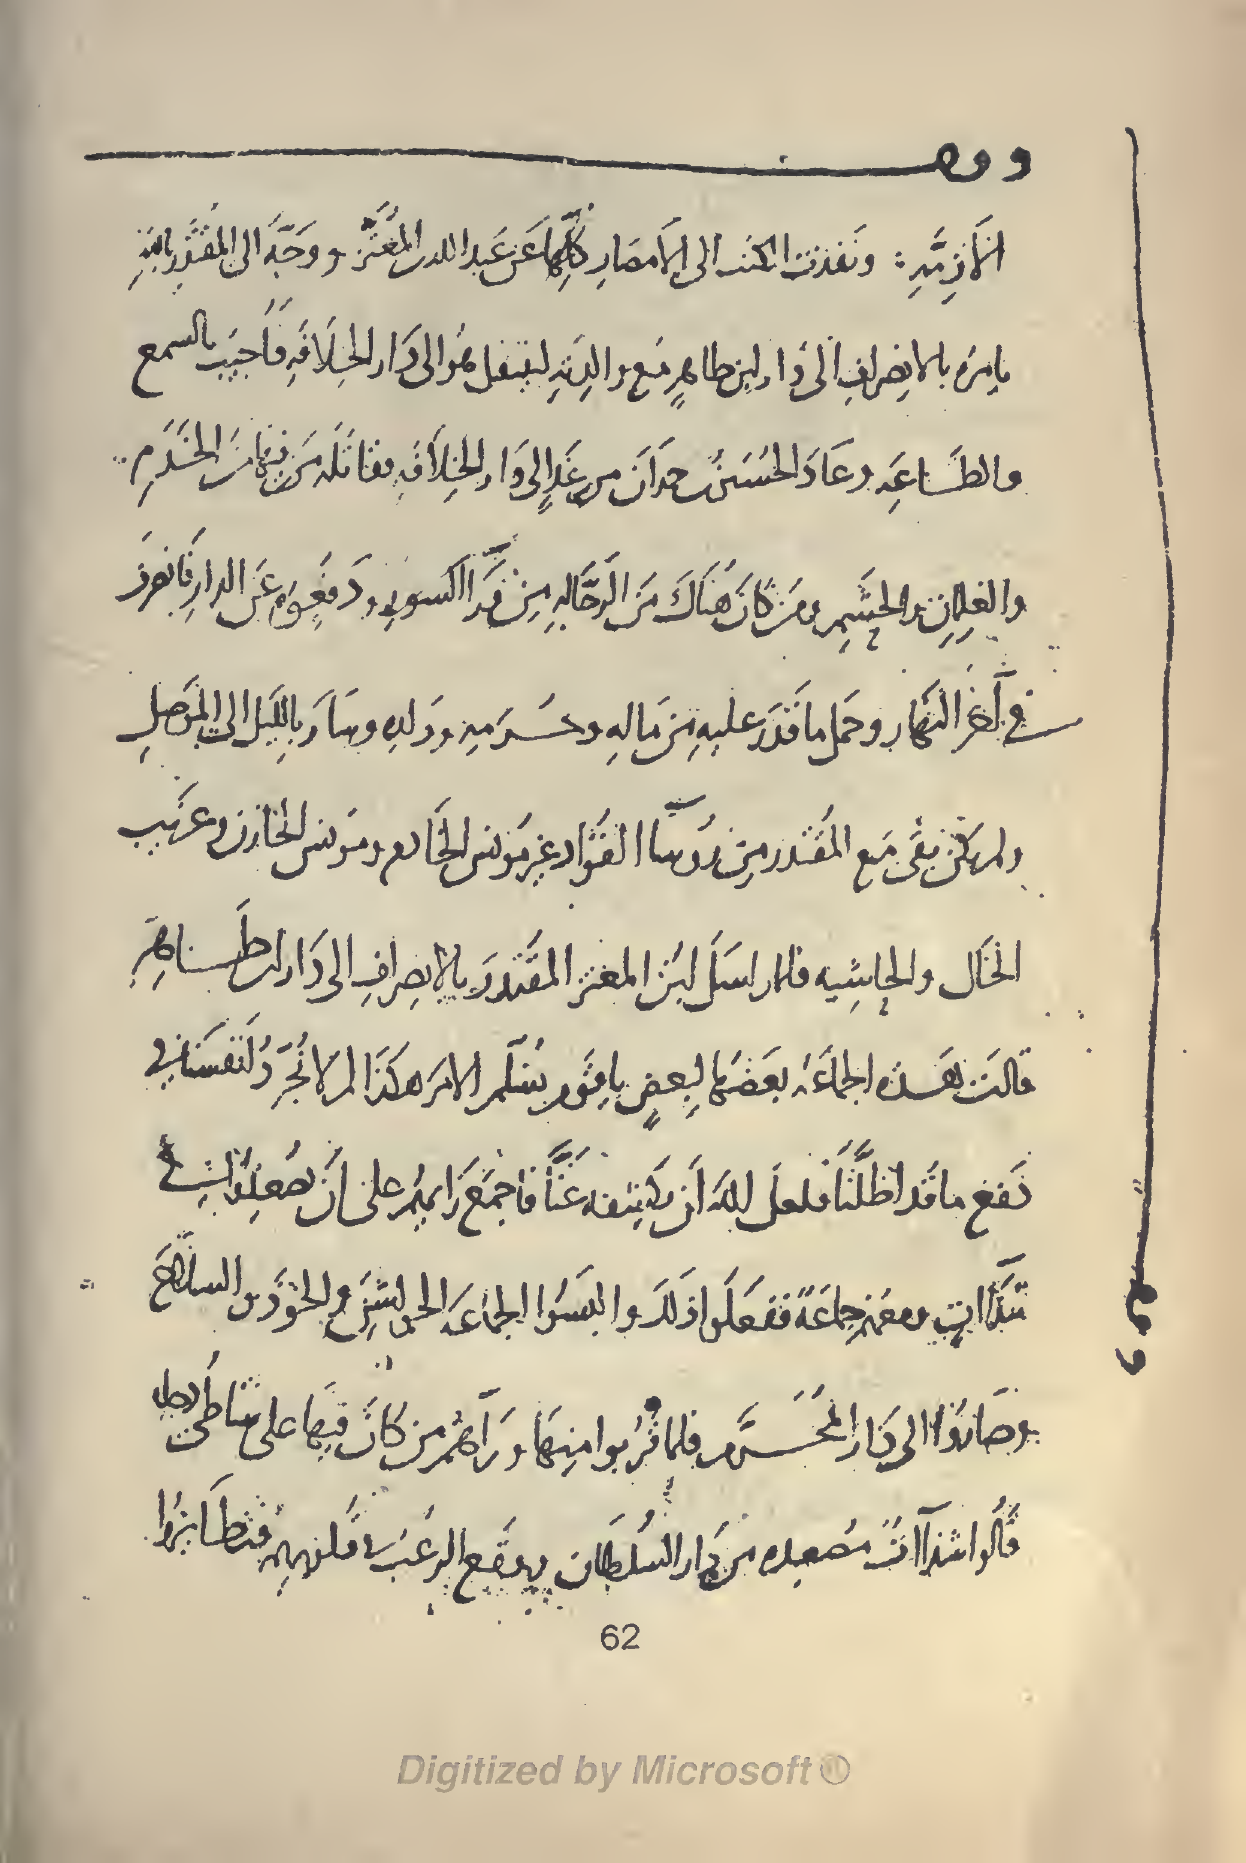 وقف
الأزمّة ونفذت الكتب الى الامصار كلّها عن عبد الله بن المعتزّ ووجّه الى المقتدر بالله
يامره بالانصراف الى دار ابن طاهرٍ مع والدته لينتقل هو الى دار الخلافه فأجيب بالسمع
والطّاعه وعاد الحسين بن حمدان من غدٍ الى دار الخلافه فقاتله من فيها من الخدم
والغلمان والحشم ومن كان هناك من الرّجّاله من ورآ السور ودفعوه عن الدار فانصرف
في آخر النهار وحمل ما قدر عليه من ماله وحرمه وولده وسار بالليل الى الموصل
ولم يكن بقى مع المقتدر من رؤسآ القوّاد غير مونس الخادم ومونس الخازن وغريب
الخال والحاشيه فلما راسل ابن المعتز المقتدر بالانصراف الى دار ابن طاهر
قالت هذه الجماعة بعضها لبعضٍ يا قوم نسلّم الامر هكذا لم لا نجرّد انفسنا في
دفع ما قد اظلّنا فلعل الله أن يكشفه عنّا فاجمع رايهم على ان يصعدوا في
شذآات ومعهم جماعة ففعلوا ذلك والبسوا الجماعه الجواشن والخوذ والسلاح
وصاروا الى دار المخرّم فلما قربوا منها ورآهم من كان فيها على شاطئ دجله
قالوا شذآات مصعده من دار السلطان ووقع الرعب في قلوبهم فتطايروا
وقف
62
Digitized by Microsoft ®